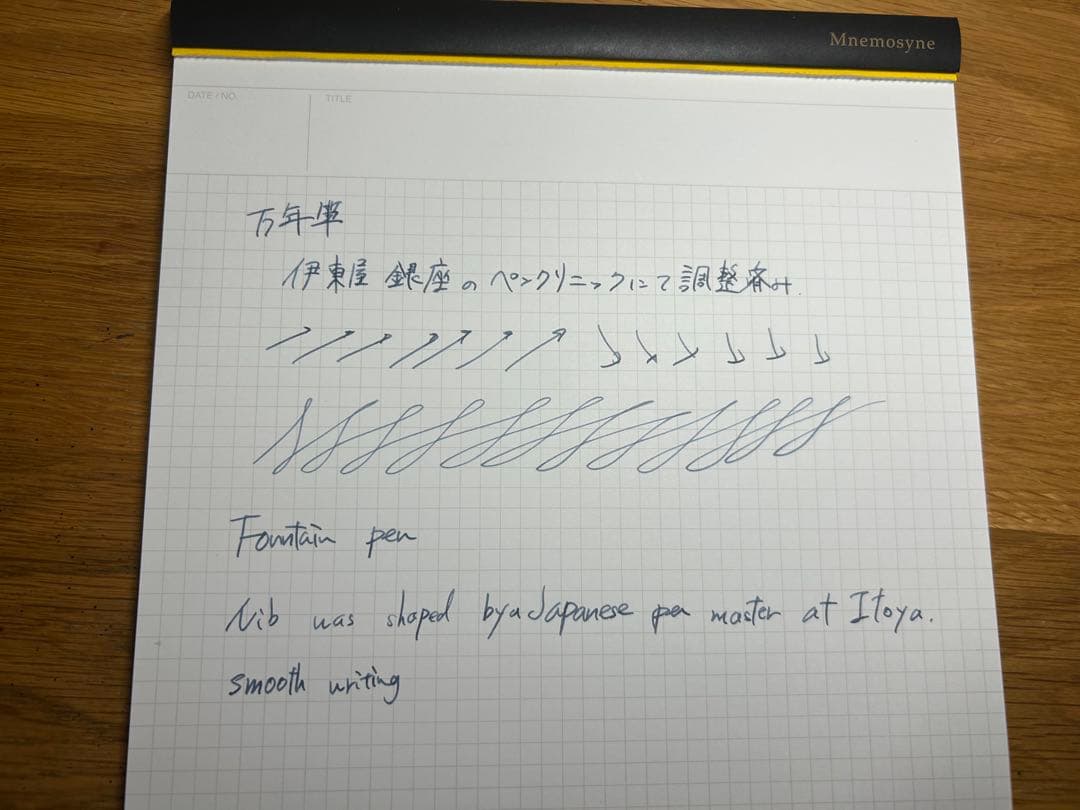 Mnemosyne
DATE / NO.
TITLE
万年筆
伊東屋 銀座のペンクリニックにて調整済み.
Fountain pen
Nib was shaped by a Japanese pen master at Itoya.
smooth writing